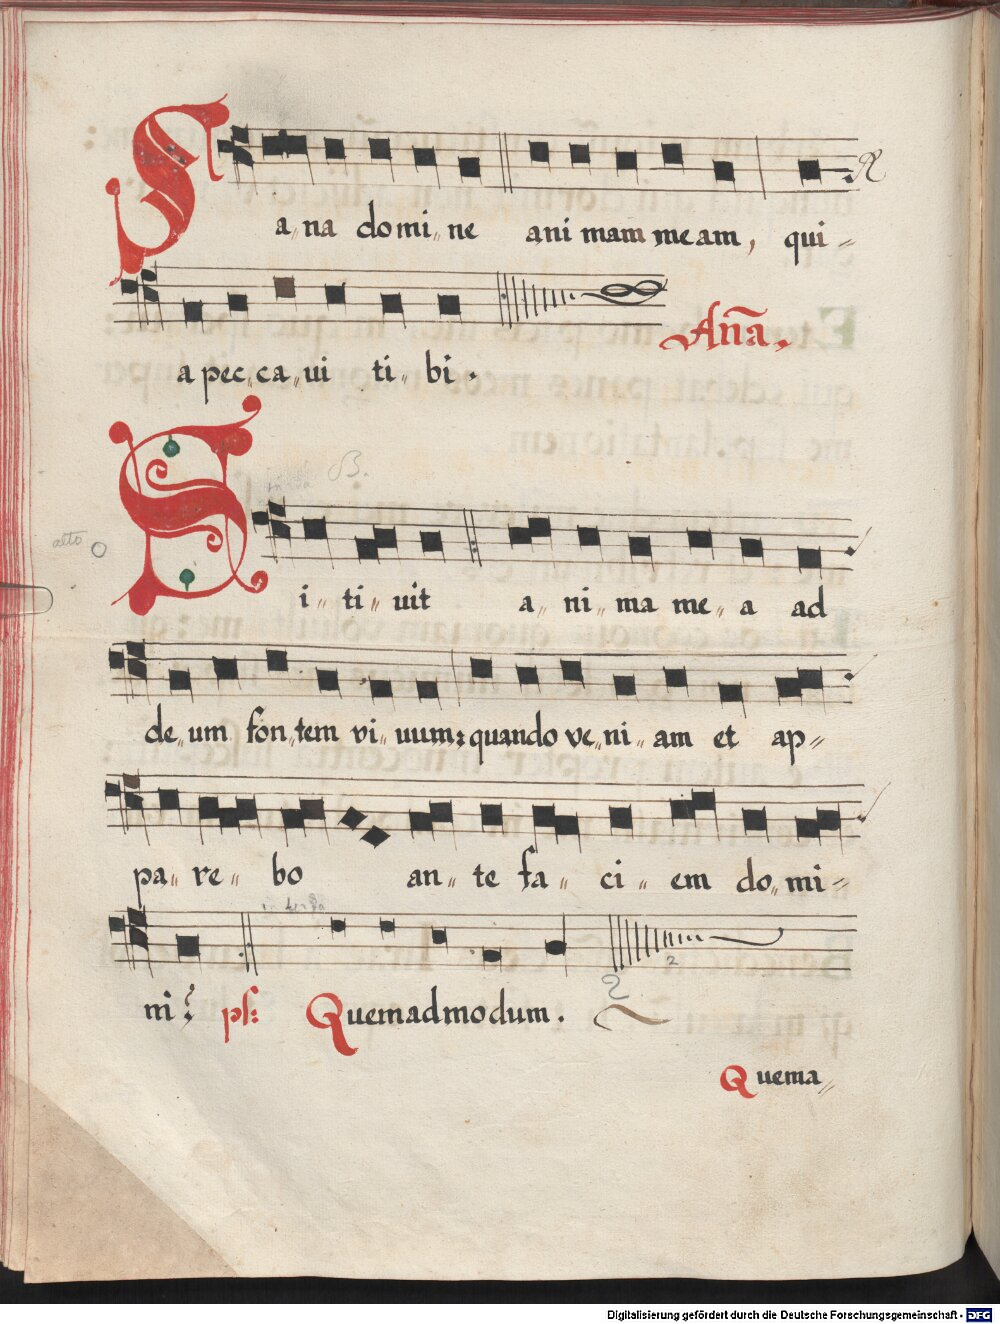 Sa„na domi„ne ani mam meam, qui„
a pec„ca„ui ti„ bi.
Aña.
B.
alto
Si„ ti„ uit a„ ni„ ma me„ a ad
de„um fon„tem vi„ uum: quando ve„ni„ am et ap„
pa„ re„ bo an„ te fa„ ci„ em do„mi„
ni? ps: Quemadmodum.
Quema„
Digitalisierung gefördert durch die Deutsche Forschungsgemeinschaft - DFG